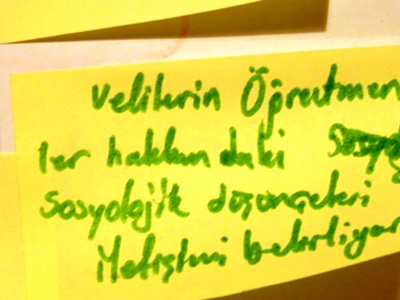 Velilerin Öğretmen
ler hakkındaki
Sosyolojik düşünceleri
İletişimi belirliyor